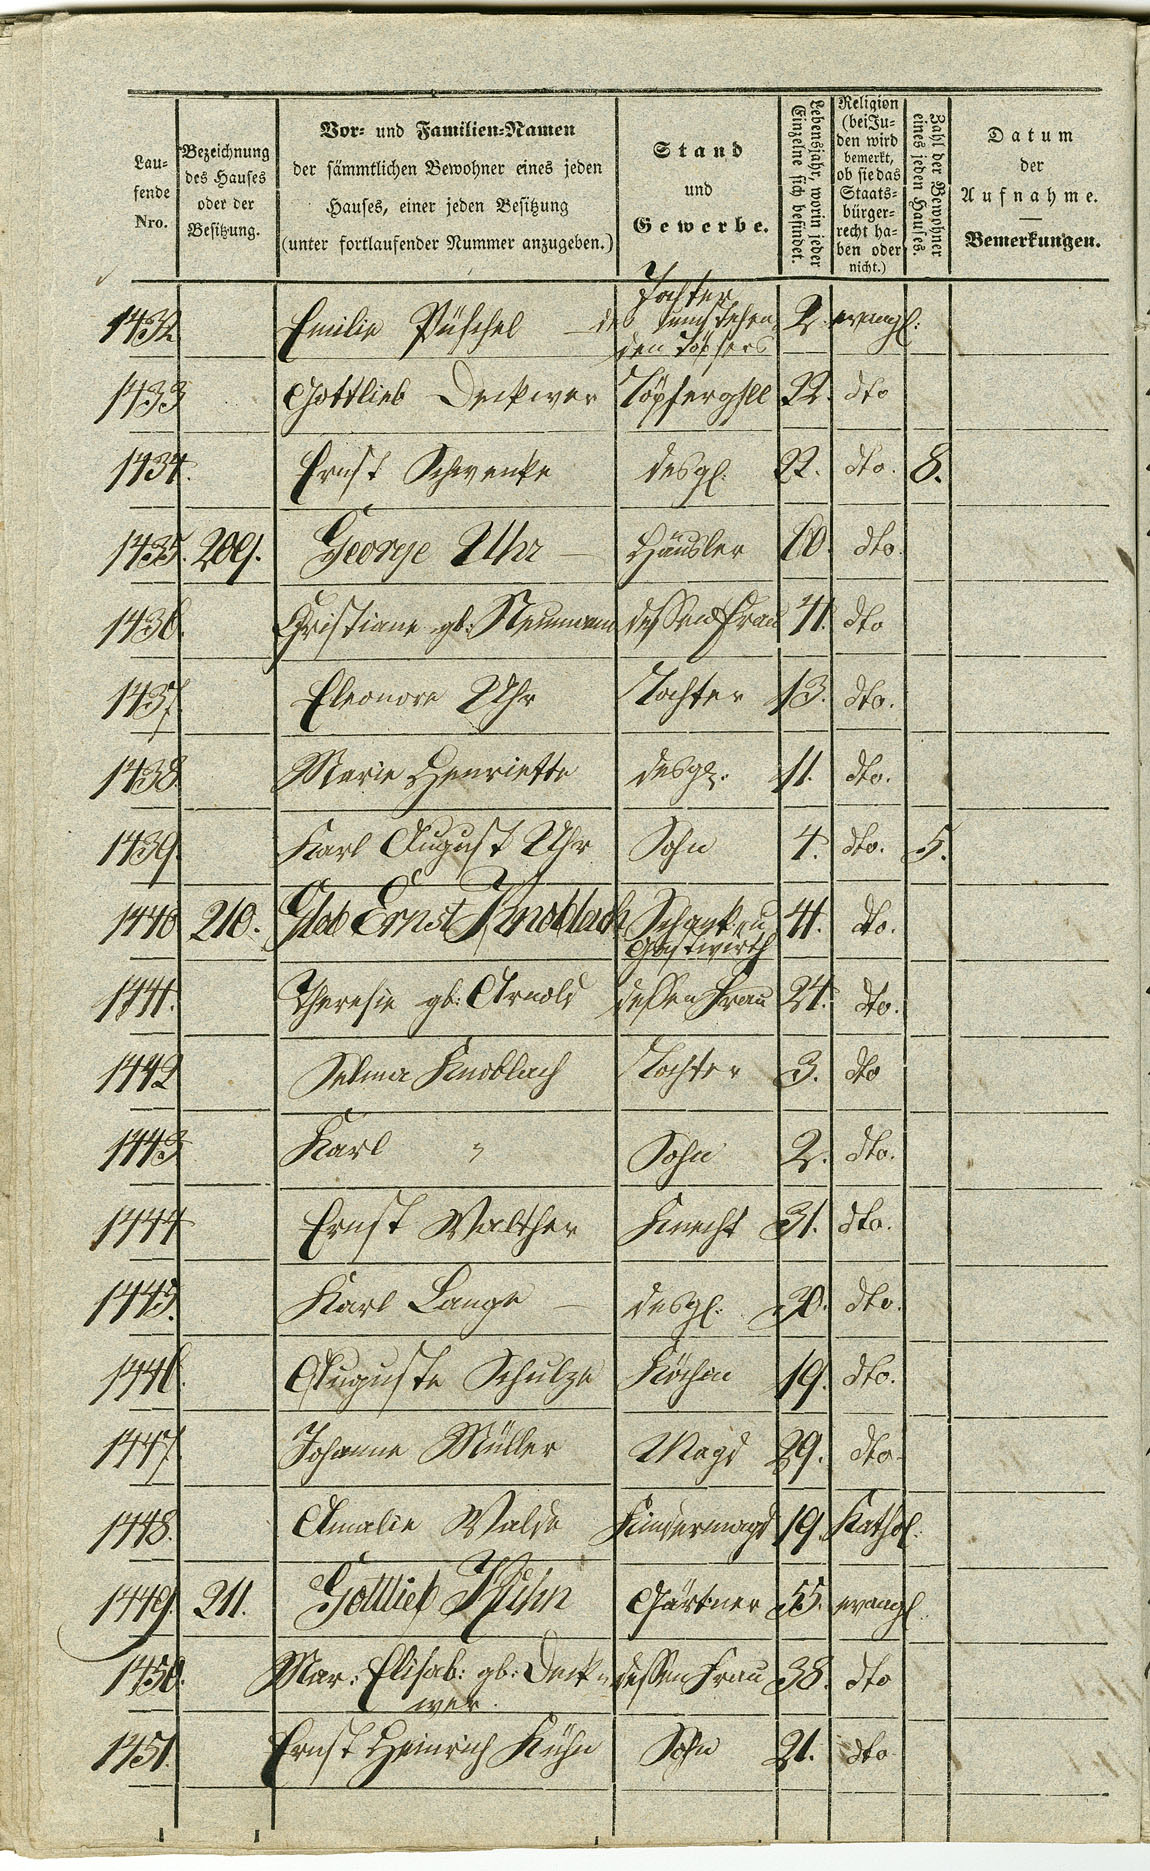 Laufende Nro. | Bezeichnung des Hauses oder der Besitzung. | Vor- und Familien-Namen der sämmtlichen Bewohner eines jeden Hauses, einer jeden Besitzung (unter fortlaufender Nummer anzugeben.) | Stand und Gewerbe. | Lebensjahr, worin jeder Einzelne sich befindet. | Religion (bei Juden wird bemerkt, ob sie das Staatsbürgerrecht haben oder nicht.) | Zahl der Bewohner eines jeden Hauses. | Datum der Aufnahme. — Bemerkungen.
1432 Emilie Püschel — Tochter des umstehenden Töpfers 2. evangl:
1433 Gottlieb Deckwer Töpfergsell 22. dto
1434. Ernst Schwenke desgl. 22. dto. 8.
1435. 209. George Uhr — Häusler 60. dto.
1436. Christiane gb: Neumann dessen Frau 41. dto
1437. Eleonore Uhr Tochter 13. dto.
1438. Marie Henriette desgl. 11. dto.
1439. Karl August Uhr Sohn 4. dto. 5.
1440 210. Glob Ernst Knoblach Schank u Gastwirth 41. dto.
1441. Theresie gb: Arnold dessen Frau 24. dto.
1442 Selma Knoblach Tochter 3. dto
1443 Karl " Sohn 2. dto.
1444 Ernst Walther Knecht 31. dto.
1445. Karl Lange — desgl. 30. dto.
1446. Auguste Schulze Köchin 19. dto.
1447. Johanne Müller Magd 29. dto.
1448. Amalie Walde Kindermagd 19 Kathol:
1449. 211. Gottlieb Kühn Gärtner 55. evangl.
1450. Mar: Elisab: gb: Deckwer. dessen Frau 38. dto
1451. Ernst Heinrich Kühn Sohn 21. dto